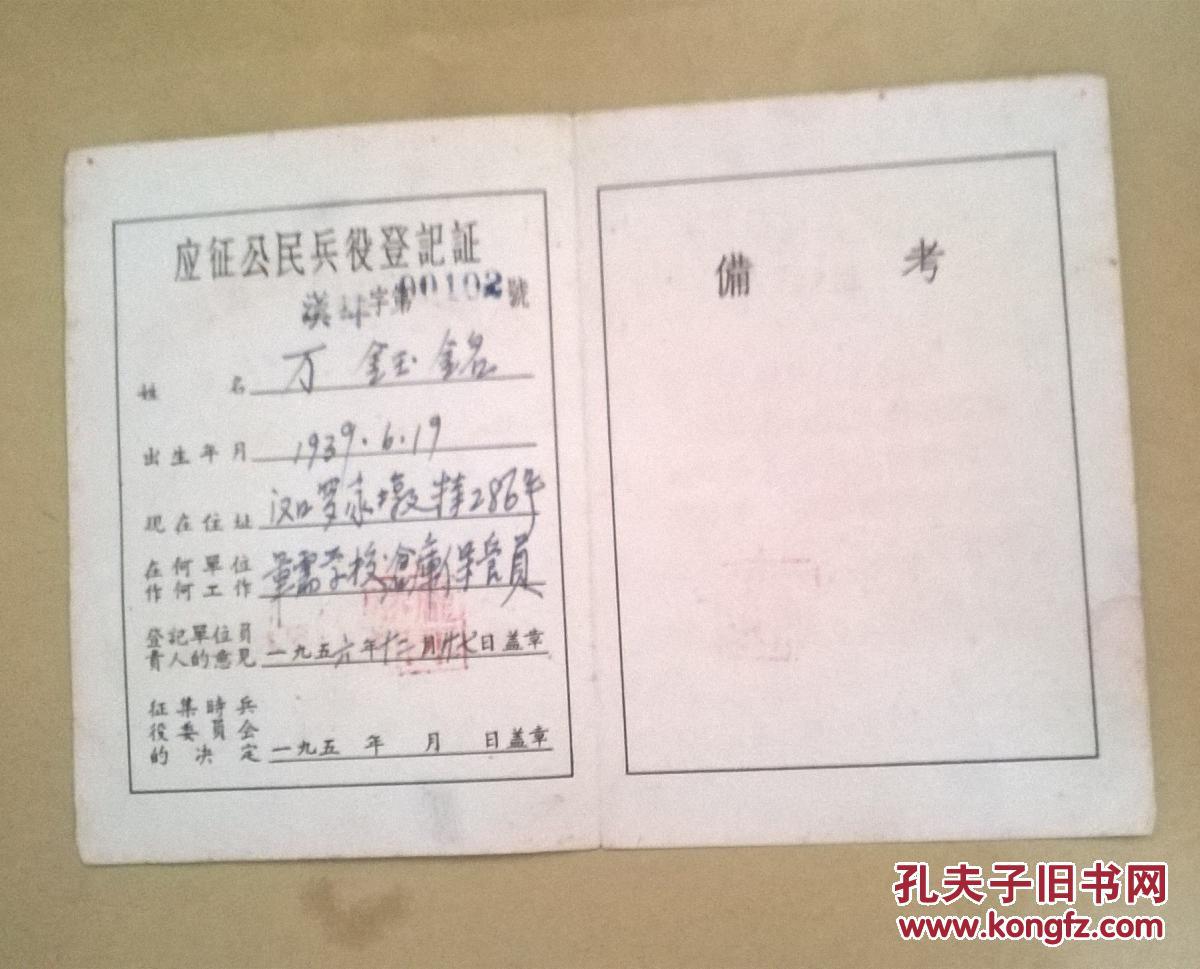 应征公民兵役登記証
漢 字第00102號
姓 名 万钰铭
出生年月 1939.6.19
現在住址 汉口罗家墩特286号
在何單位
作何工作 学校倉庫保管員
登記單位負
責人的意見 一九五六年十二月廿七日盖章
征集時兵
役委員会
的决定 一九五 年 月 日盖章
備 考
孔夫子旧书网
www.kongfz.com